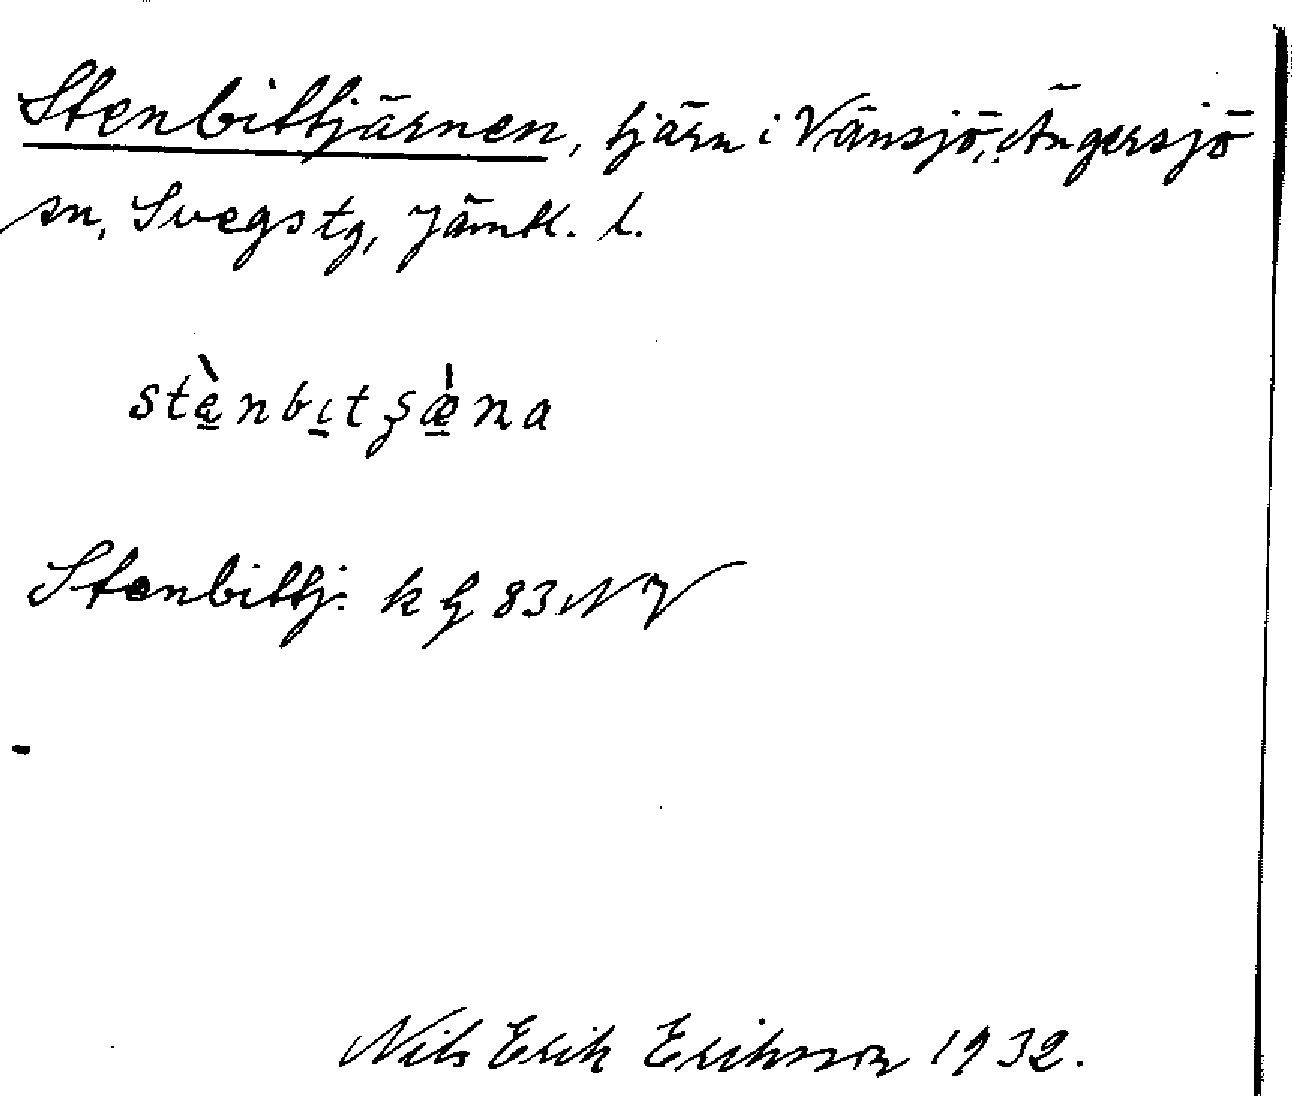 Stenbittjärnen, tjärn i Vänsjö, Ängersjö
sn, Svegs tg, Jämtl. l.
stènbitʂæ̀na
Stenbittj. k g 83 NV
Nils Erik Eriksson 1932.